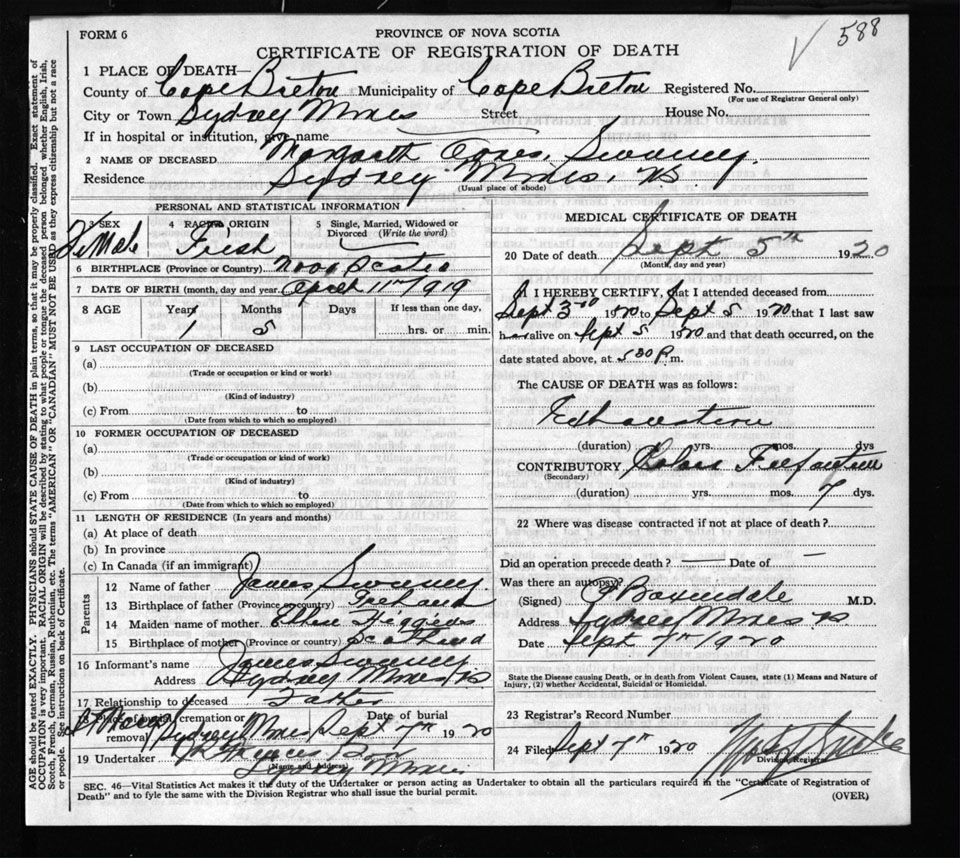 588
FORM 6
PROVINCE OF NOVA SCOTIA
CERTIFICATE OF REGISTRATION OF DEATH
1 PLACE OF DEATH—
County of Cape Breton Municipality of Cape Breton Registered No.
(For use of Registrar General only)
City or Town Sydney Mines Street House No.
If in hospital or institution, give name
2 NAME OF DECEASED Margarett Agnes Sweeney.
Residence Sydney Mines, NS
(Usual place of abode)
PERSONAL AND STATISTICAL INFORMATION
3 SEX Female 4 RACIAL ORIGIN Irish 5 Single, Married, Widowed or Divorced (Write the word)
6 BIRTHPLACE (Province or Country) Nova Scotia
7 DATE OF BIRTH (month, day and year) April 11th 1919
8 AGE Years Months Days If less than one day,
1 5 hrs. or min.
9 LAST OCCUPATION OF DECEASED
(a)
(Trade or occupation or kind or work)
(b)
(Kind of industry)
(c) From to
(Date from which to which so employed)
10 FORMER OCCUPATION OF DECEASED
(a)
(Trade or occupation or kind of work)
(b)
(Kind of industry)
(c) From to
(Date from which to which so employed)
11 LENGTH OF RESIDENCE (In years and months)
(a) At place of death
(b) In province
(c) In Canada (if an immigrant)
Parents
12 Name of father James Sweeney
13 Birthplace of father (Province or country) Ireland
14 Maiden name of mother
15 Birthplace of mother (Province or country) Scotland
16 Informant's name James Sweeney
Address Sydney Mines NS
17 Relationship to deceased Father
18 Place of burial, cremation or removal Sydney Mines Date of burial Sept 7th 1920
19 Undertaker
(Name and Address) Sydney Mines.
MEDICAL CERTIFICATE OF DEATH
20 Date of death Sept 5th 1920
(Month, day and year)
21 I HEREBY CERTIFY, that I attended deceased from
Sept 3rd 1920 to Sept 5 1920 that I last saw
h alive on Sept 5 1920 and that death occurred, on the
date stated above, at 530 P. m.
The CAUSE OF DEATH was as follows:
Exhaustion
(duration) yrs. mos. dys
CONTRIBUTORY Cholera Infantum
(Secondary)
(duration) yrs. mos. 7 dys.
22 Where was disease contracted if not at place of death?
Did an operation precede death? — Date of —
Was there an autopsy?
(Signed) Baxendale M.D.
Address Sydney Mines NS
Date Sept 7th 1920
State the Disease causing Death, or in death from Violent Causes, state (1) Means and Nature of Injury, (2) whether Accidental, Suicidal or Homicidal.
23 Registrar's Record Number
24 Filed Sept 7th 1920
Division Registrar
SEC. 46—Vital Statistics Act makes it the duty of the Undertaker or person acting as Undertaker to obtain all the particulars required in the "Certificate of Registration of
Death" and to fyle the same with the Division Registrar who shall issue the burial permit.
(OVER)
AGE should be stated EXACTLY. PHYSICIANS should STATE CAUSE OF DEATH in plain terms, so that it may be properly classified. Exact statement of
OCCUPATION is very important. RACIAL ORIGIN will be described by stating to what people or tongue the deceased person belonged whether English, Irish,
Scotch, French, German, Russian, Ruthenian, etc. The terms "AMERICAN" OR "CANADIAN" MUST NOT BE USED as they express citizenship but not a race
or people. See instructions on back of Certificate.